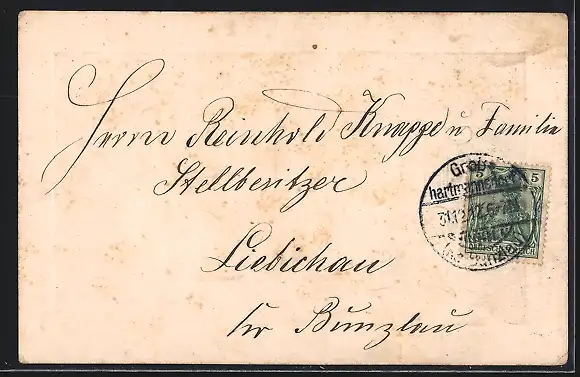 Herrn Reinhold Knappe u Familie
Stellbesitzer
Liebichau
Kr Bunzlau
Groß-
hartmannsdorf
31.12.
(Kr. Bunzlau)
5